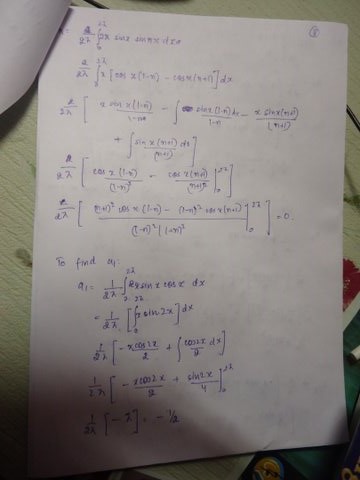 (5)
= 2/2λ ∫₀^2λ 2x sinx sin nx dx
2/2λ ∫₀^2λ x [cos x(1-n) - cos x(n+1)] dx
2/2λ [ x sin x(1-n)/1-n - ∫ sin x(1-n) dx/1-n - x sin x(n+1)/(n+1)
+ ∫ sin x(n+1) dx/(n+1) ]
2/2λ [ cos x(1-n)/(1-n)² - cos x(n+1)/(n+1)² ]₀^2λ ]
2/2λ [ (n+1)² cos x(1-n) - (1-n)² cos x(n+1)/(1-n)² (1+n)² ]₀^2λ ] = 0.
To find a₁:
a₁ = 1/2λ ∫₀^2λ 2x sin x cos x dx
= 1/2λ [ ∫₀^2λ x sin 2x ] dx
1/2λ [ - x cos 2x/2 + ∫ cos 2x/2 dx ]
1/2λ [ - x cos 2x/2 + sin 2x/4 ]₀^2λ
1/2λ [ - λ ] = - 1/2